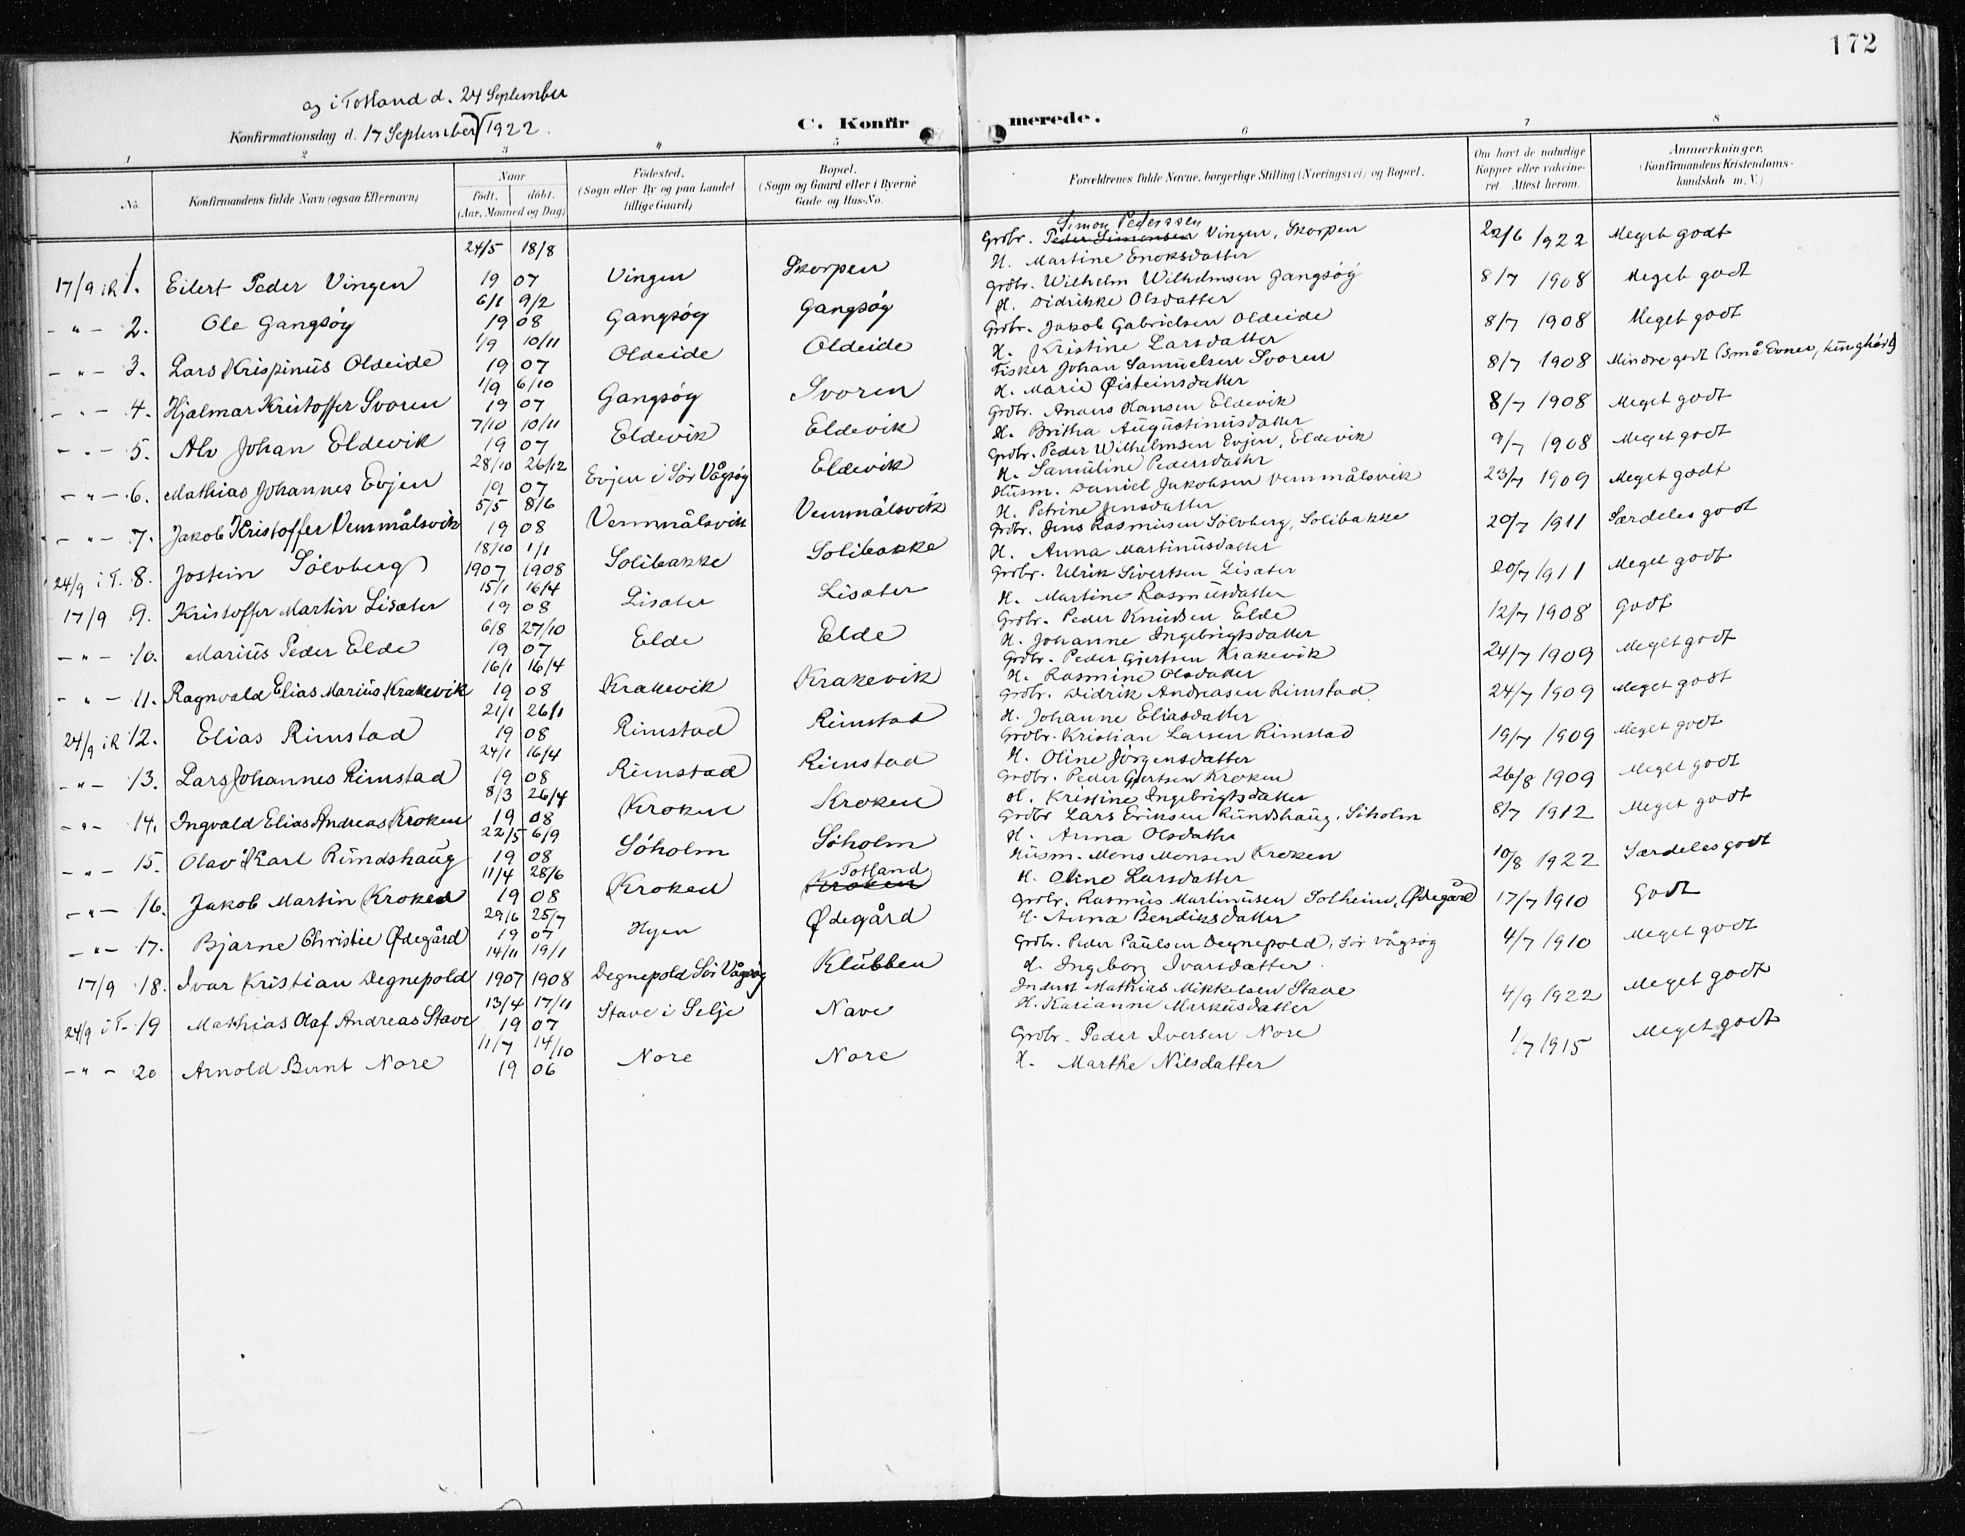 172
og i Totland d. 24 September
Konfirmationsdag d. 17 September 1922.
C. Konfirmerede.
1 2 3 4 5 6 7 8
No. Konfirmandens fulde Navn (ogsaa Efternavn) Naar Født. døbt. (Aar, Maaned og Dag) Fødested. (Sogn eller By og paa Landet tillige Gaard) Bopæl. (Sogn og Gaard eller i Byerne Gade og Hus-No. Forældrenes fulde Navne, borgerlige Stilling (Næringsvei) og Bopæl. Om havt de naturlige Kopper eller vakcineret. Attest herom. Anmærkninger. (Konfirmandens Kristendomskundskab m. V.)
17/9 i R 1. Eilert Peder Vingen 24/5 18/8 1907 Vingen Skorpen Grdbr. Simon Pederssen Peder Simonsen Vingen, Skorpen H. Martine Enoksdatter 22/6 1922 Meget godt
- " - 2. Ole Gangsøy 6/1 9/2 1908 Gangsøy Gangsøy Grdbr. Wilhelm Wilhelmsen Gangsøy H. Didrikke Olsdatter 8/7 1908 Meget godt
- " - 3. Lars Krispinus Oldeide 1/9 10/11 1907 Oldeide Oldeide Grdbr. Jakob Gabrielsen Oldeide H. Kristine Larsdatter 8/7 1908 Meget godt
- " - 4. Hjalmar Kristoffer Svoren 1/9 6/10 1907 Gangsøy Svoren Fisker Johan Samuelsen Svoren H. Marie Øisteinsdatter 8/7 1908 Mindre godt (små Evner, tunghørt)
- " - 5. Alv Johan Eldevik 7/10 10/11 1907 Eldevik Eldevik Grdbr. Anders Hansen Eldevik H. Britha Augustinusdatter 8/7 1908 Meget godt
- " - 6. Mathias Johannes Evjen 28/10 26/12 1907 Evjen i Sør Vågsøy Eldevik Grdbr. Peder Wilhelmsen Evjen, Eldevik H. Samuline Pedersdatter 9/7 1908 Meget godt
- " - 7. Jakob Kristoffer Vemmålsvik 5/5 8/6 1908 Vemmålsvik Vemmålsvik Husm. Daniel Jakobsen Vemmålsvik H. Petrine Jensdatter 23/7 1909 Meget godt
24/9 i T. 8. Jostein Sølvberg 18/10 1/1 1907 1908 Solibakke Solibakke Grdbr. Jens Rasmusen Sølvberg, Solibakke H. Anna Martinusdatter 20/7 1911 Særdeles godt
17/9 9. Kristoffer Martin Lisæter 15/1 16/4 1908 Lisæter Lisæter Grdbr. Ulrik Sivertsen Lisæter H. Martine Rasmusdatter 20/7 1911 Meget godt
- " - 10. Marius Peder Elde 6/8 27/10 1907 Elde Elde Grdbr. Peder Knudsen Elde H. Johanne Ingebrigtsdatter 12/7 1908 Godt
- " - 11. Ragnvald Elias Marius Krakevik 16/1 16/4 1908 Krakevik Krakevik Grdbr. Peder Gjertsen Krakevik H. Rasmine Olsdatter 24/7 1909 Meget godt
24/9 i R 12. Elias Rimstad 21/1 26/1 1908 Rimstad Rimstad Grdbr. Didrik Andreasen Rimstad H. Johanne Eliasdatter 24/7 1909 Meget godt
- " - 13. Lars Johannes Rimstad 24/1 16/4 1908 Rimstad Rimstad Grdbr. Kristian Larsen Rimstad H. Oline Jörgensdatter 19/7 1909 Meget godt
- " - 14. Ingvald Elias Andreas Kroken 8/3 26/4 1908 Kroken Kroken Grdbr. Peder Gjertsen Kroken H. Kristine Ingebrigtsdatter 26/8 1909 Meget godt
- " - 15. Olav Karl Rundshaug 22/5 6/9 1908 Søholm Søholm Grdbr Lars Eriksen Rundshaug, Søholm H. Anna Olsdatter 8/7 1912 Meget godt
- " - 16. Jakob Martin Kroken 11/4 28/6 1908 Kroken Totland Kroken Husm. Mons Monsen Kroken H. Oline Larsdatter 10/8 1922 Særdeles godt
- " - 17. Bjarne Christie Ødegård 29/6 25/7 1907 Hyen Ødegård Grdbr. Rasmus Martinusen Solheim, Ødegård H. Anna Bendiksdatter 17/7 1910 Godt
17/9 18. Ivar Kristian Degnepold 14/11 19/1 1907 1908 Degnepold Sør Vågsøy Klubben Grdbr. Peder Paulsen Degnepold, Sør Vågsøy H. Ingeborg Ivarsdatter 4/7 1910 Meget godt
24/9 i T- 19 Mathias Olaf Andreas Stave 13/4 17/11 1907 Stave i Selje Nave Indust Mathias Mikkelsen Stave H. Karianne Markusdatter 4/9 1922 Meget godt
- " - 20 Arnold Bernt Nore 11/7 14/10 1906 Nore Nore Grdbr. Peder Iversen Nore H. Marthe Nilsdatter 1/7 1915 Meget godt